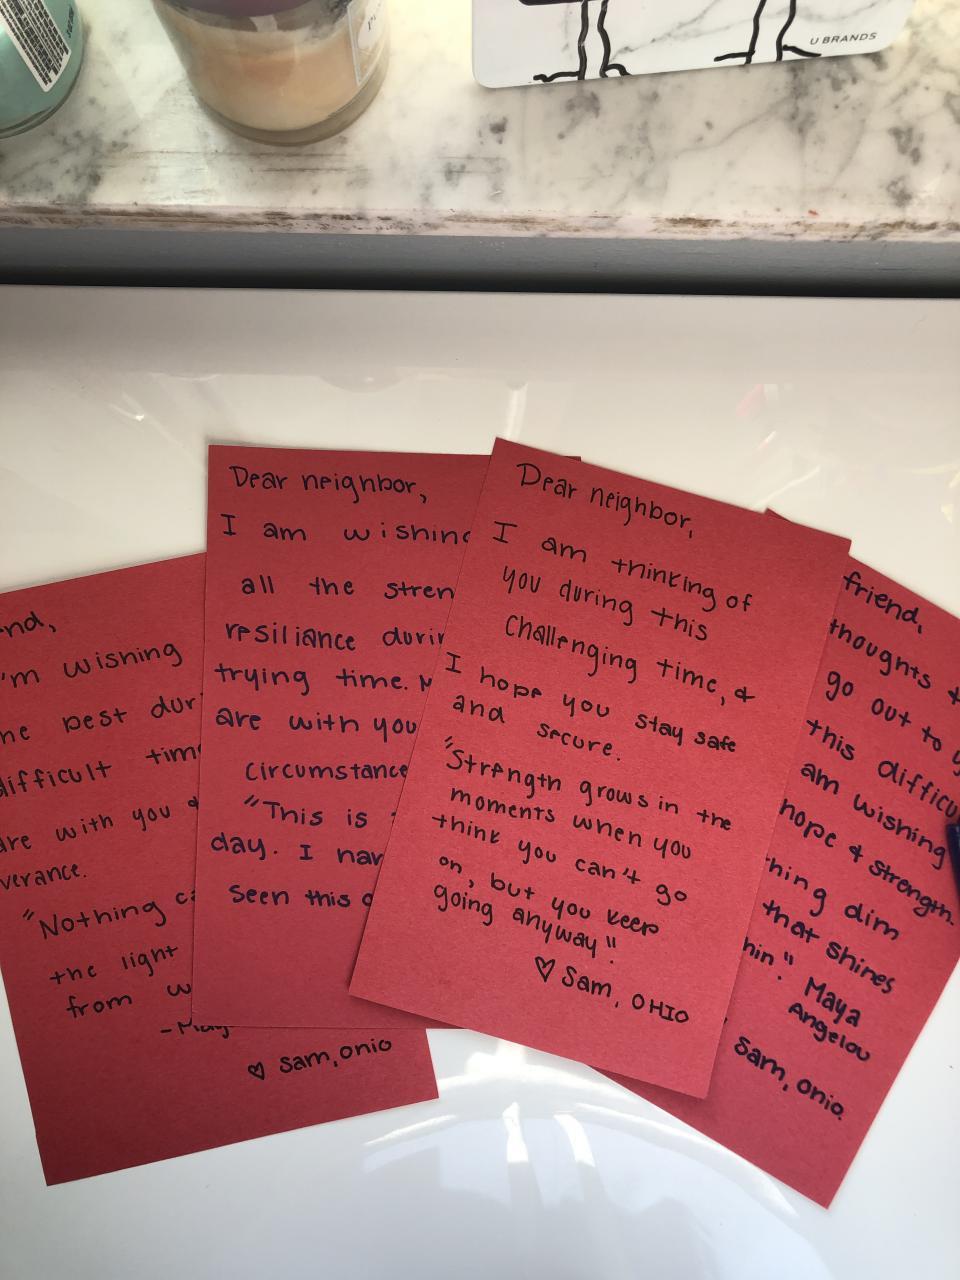 U BRANDS
nd,
'm wishing
he best dur
difficult time
are with you &
verance.
"Nothing ca
the light
from w
- May
♡ Sam, OHIO
Dear neighbor,
I am wishing
all the stren
resiliance durin
trying time. M
are with you
circumstance
"This is
day. I hav
seen this o
Dear neighbor,
I am thinking of
you during this
challenging time, &
I hope you stay safe
and secure.
"Strength grows in the
moments when you
think you can't go
on, but you keep
going anyway".
♡ Sam, OHIO
friend,
thoughts &
go out to y
this difficu
am wishing
hope & strength.
thing dim
that shines
hin." Maya
Angelou
Sam, OHIO